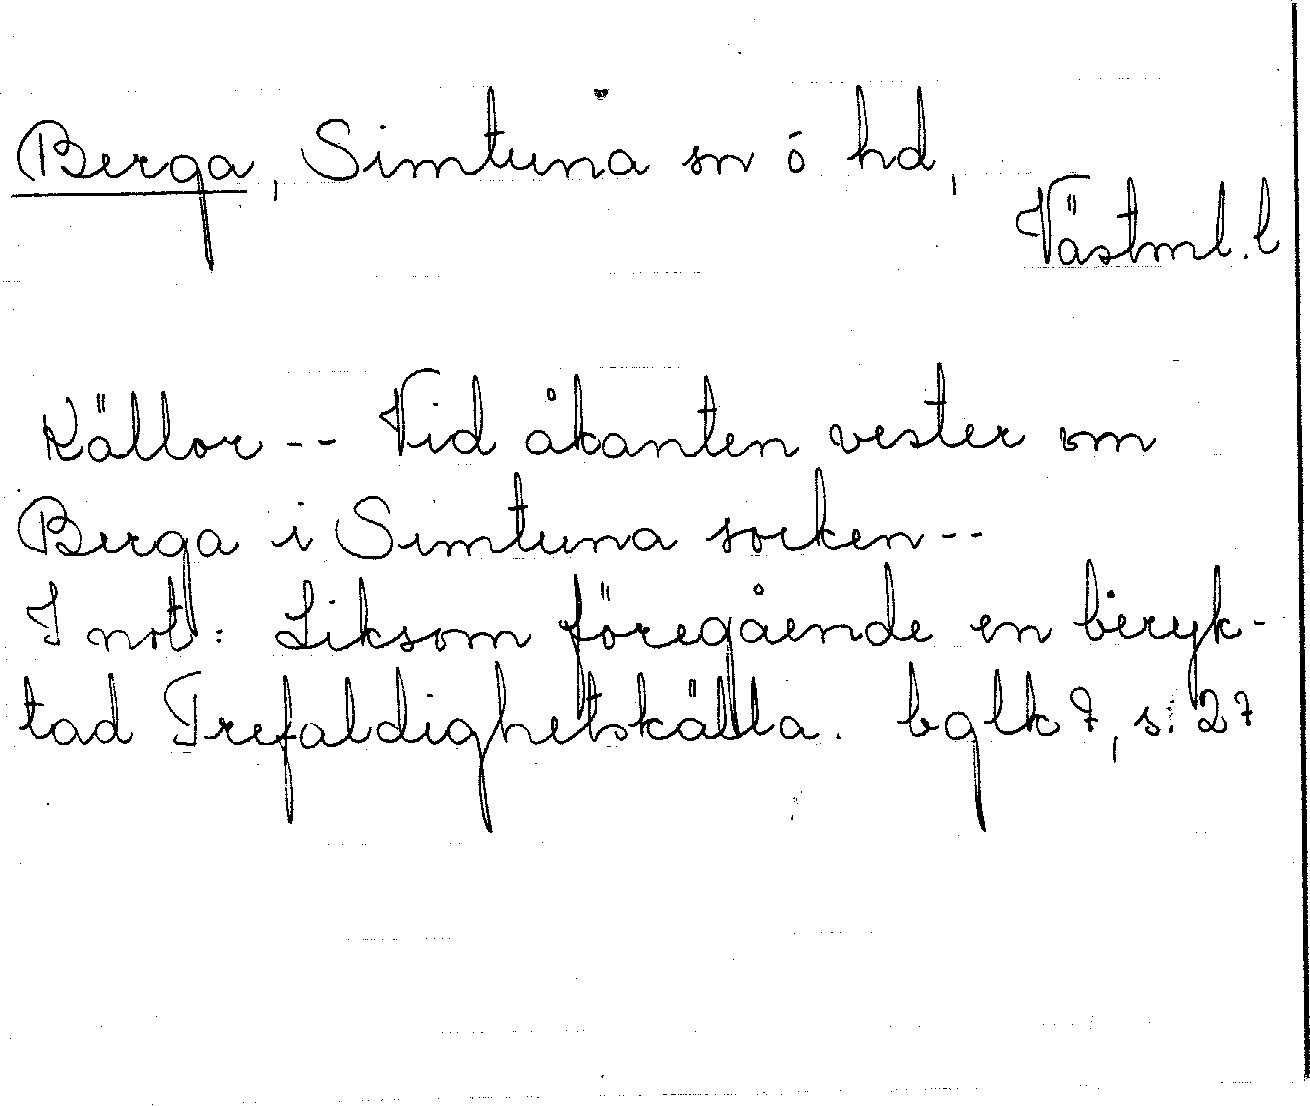 Berga, Simtuna sn o hd,
Västml. l
Källor -- Vid åkanten vester om
Berga i Simtuna socken --
I not: Liksom föregående en beryk-
tad Trefaldighetskälla. bglk 7, s. 27